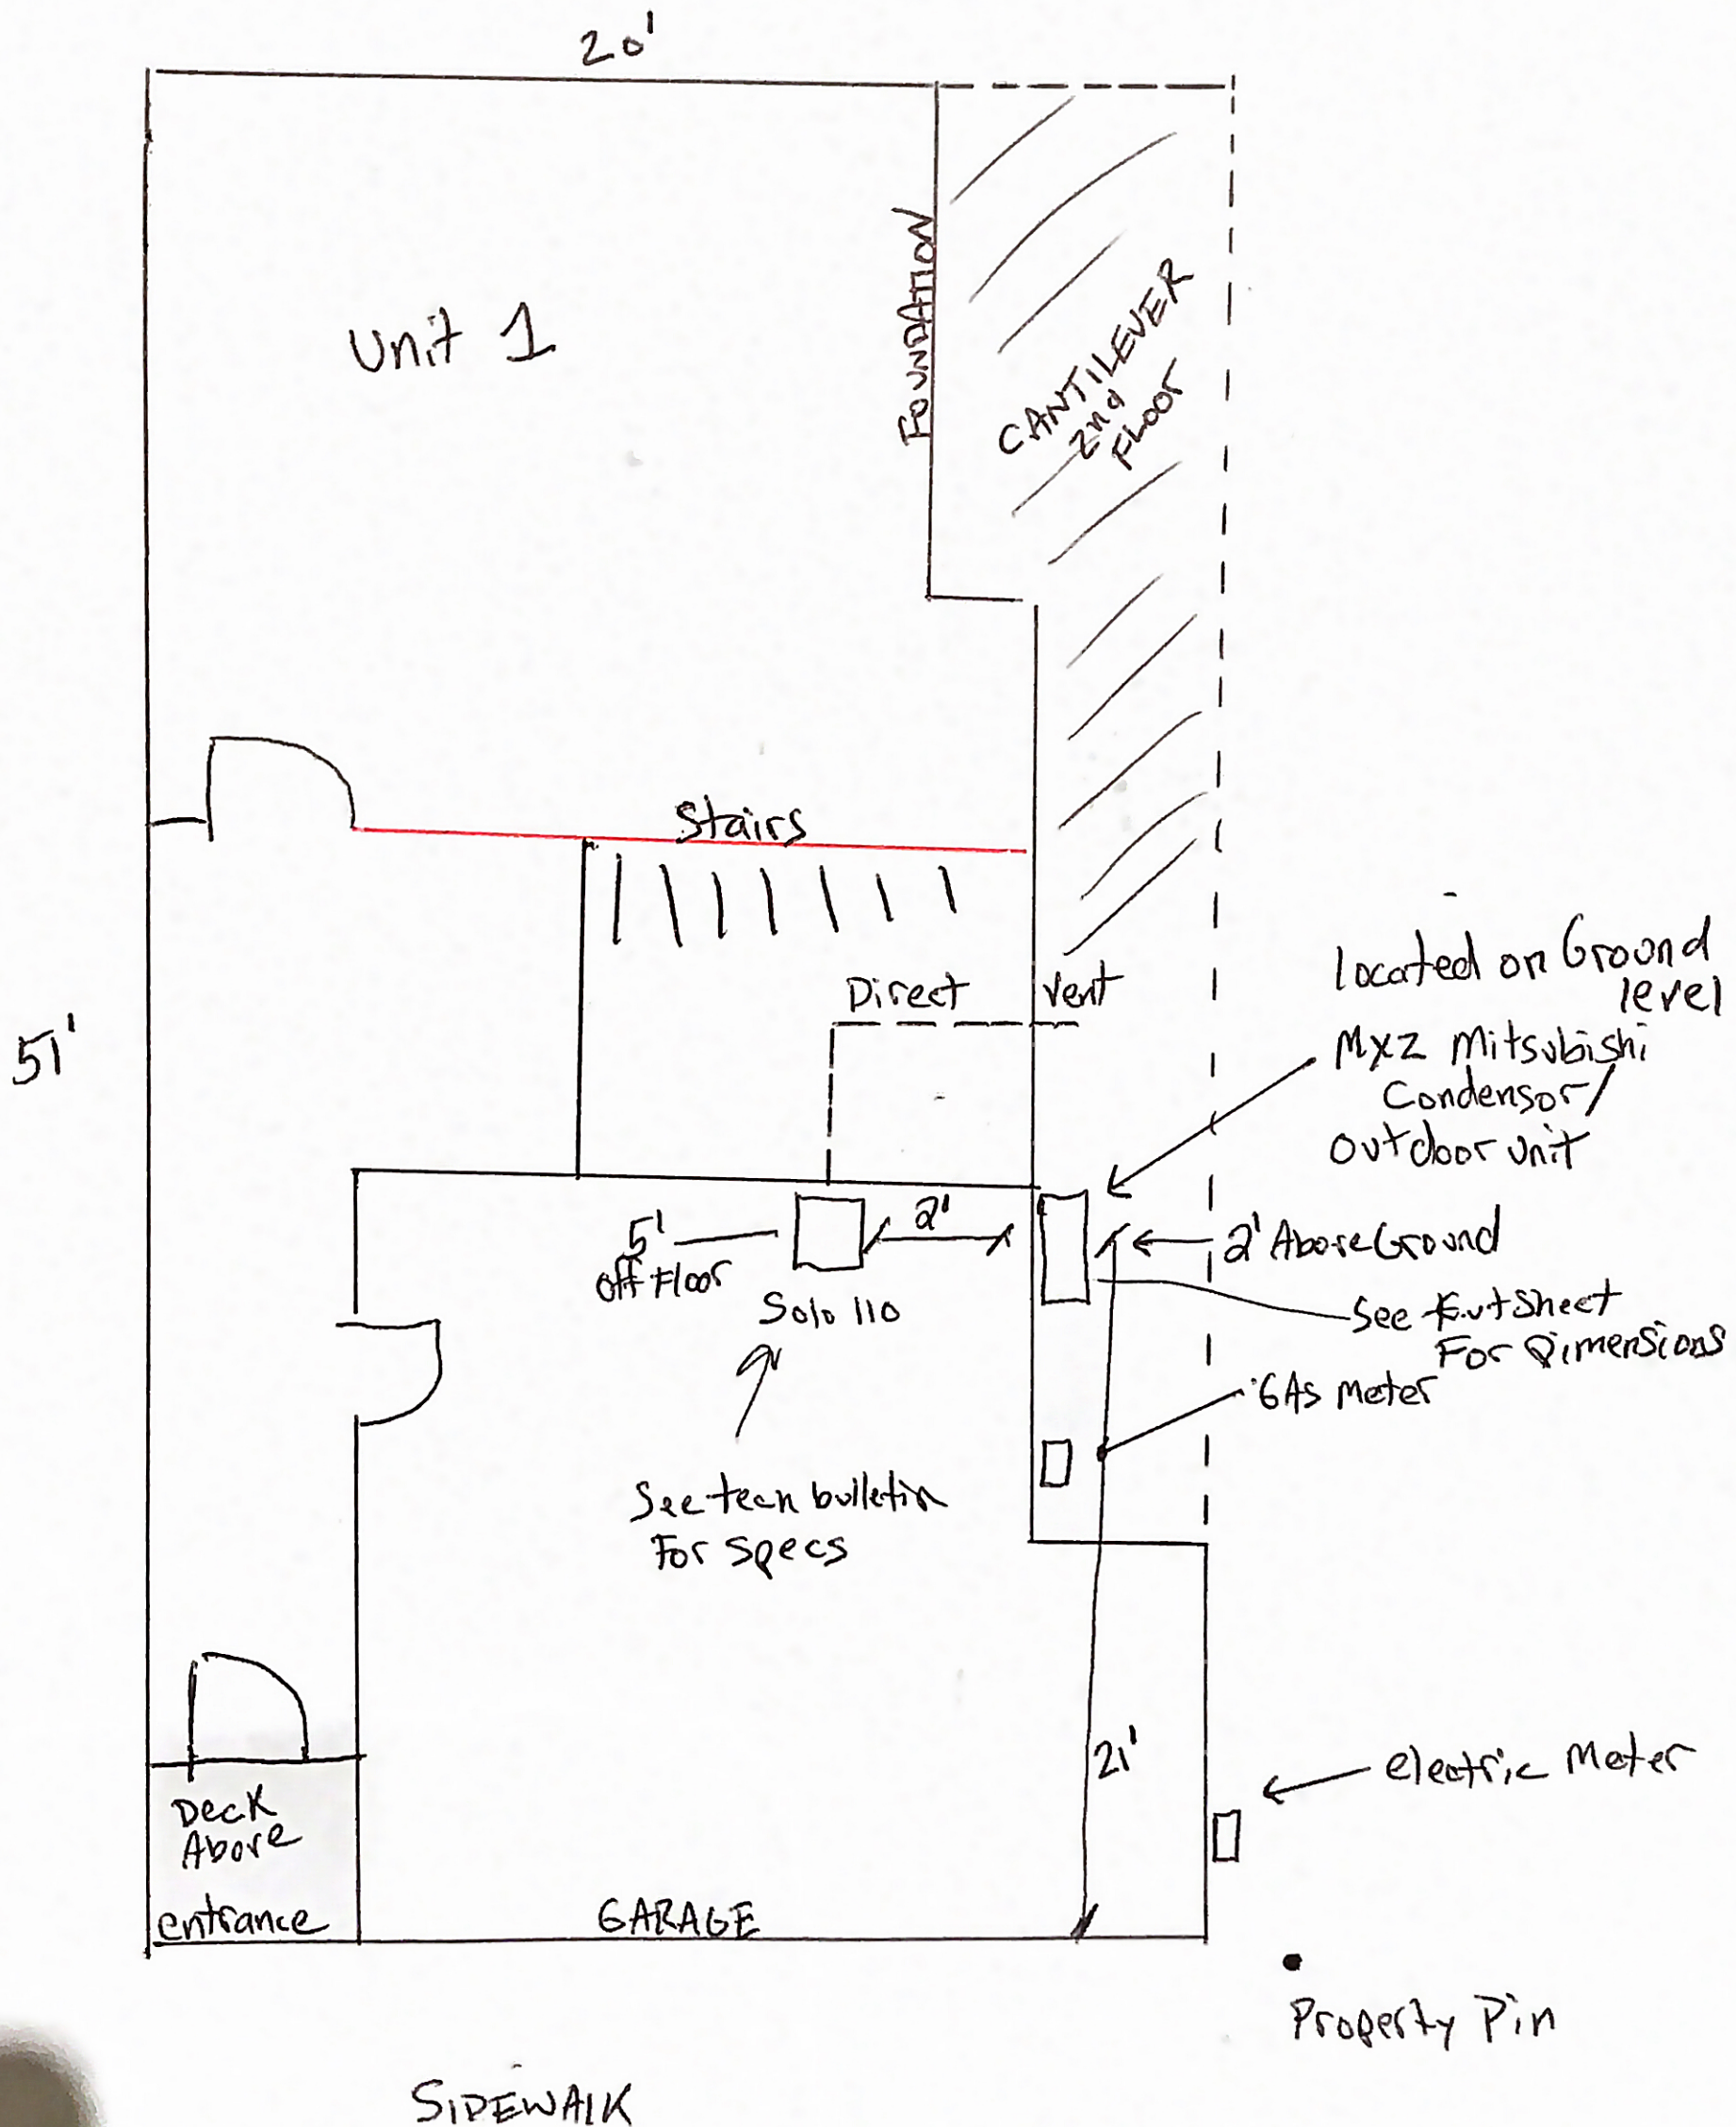 20'
Unit 1
FOUNDATION
CANTILEVER
2nd
FLOOR
Stairs
Direct Vent
51'
Located on Ground
level
MXZ Mitsubishi
Condensor/
Outdoor unit
2'
5'
off Floor
Solo 110
2' Above Ground
See
Sheet
For Dimensions
GAS Meter
See tech bulletin
For Specs
21'
electric Meter
Deck
Above
entrance
GARAGE
Property Pin
SIDEWALK